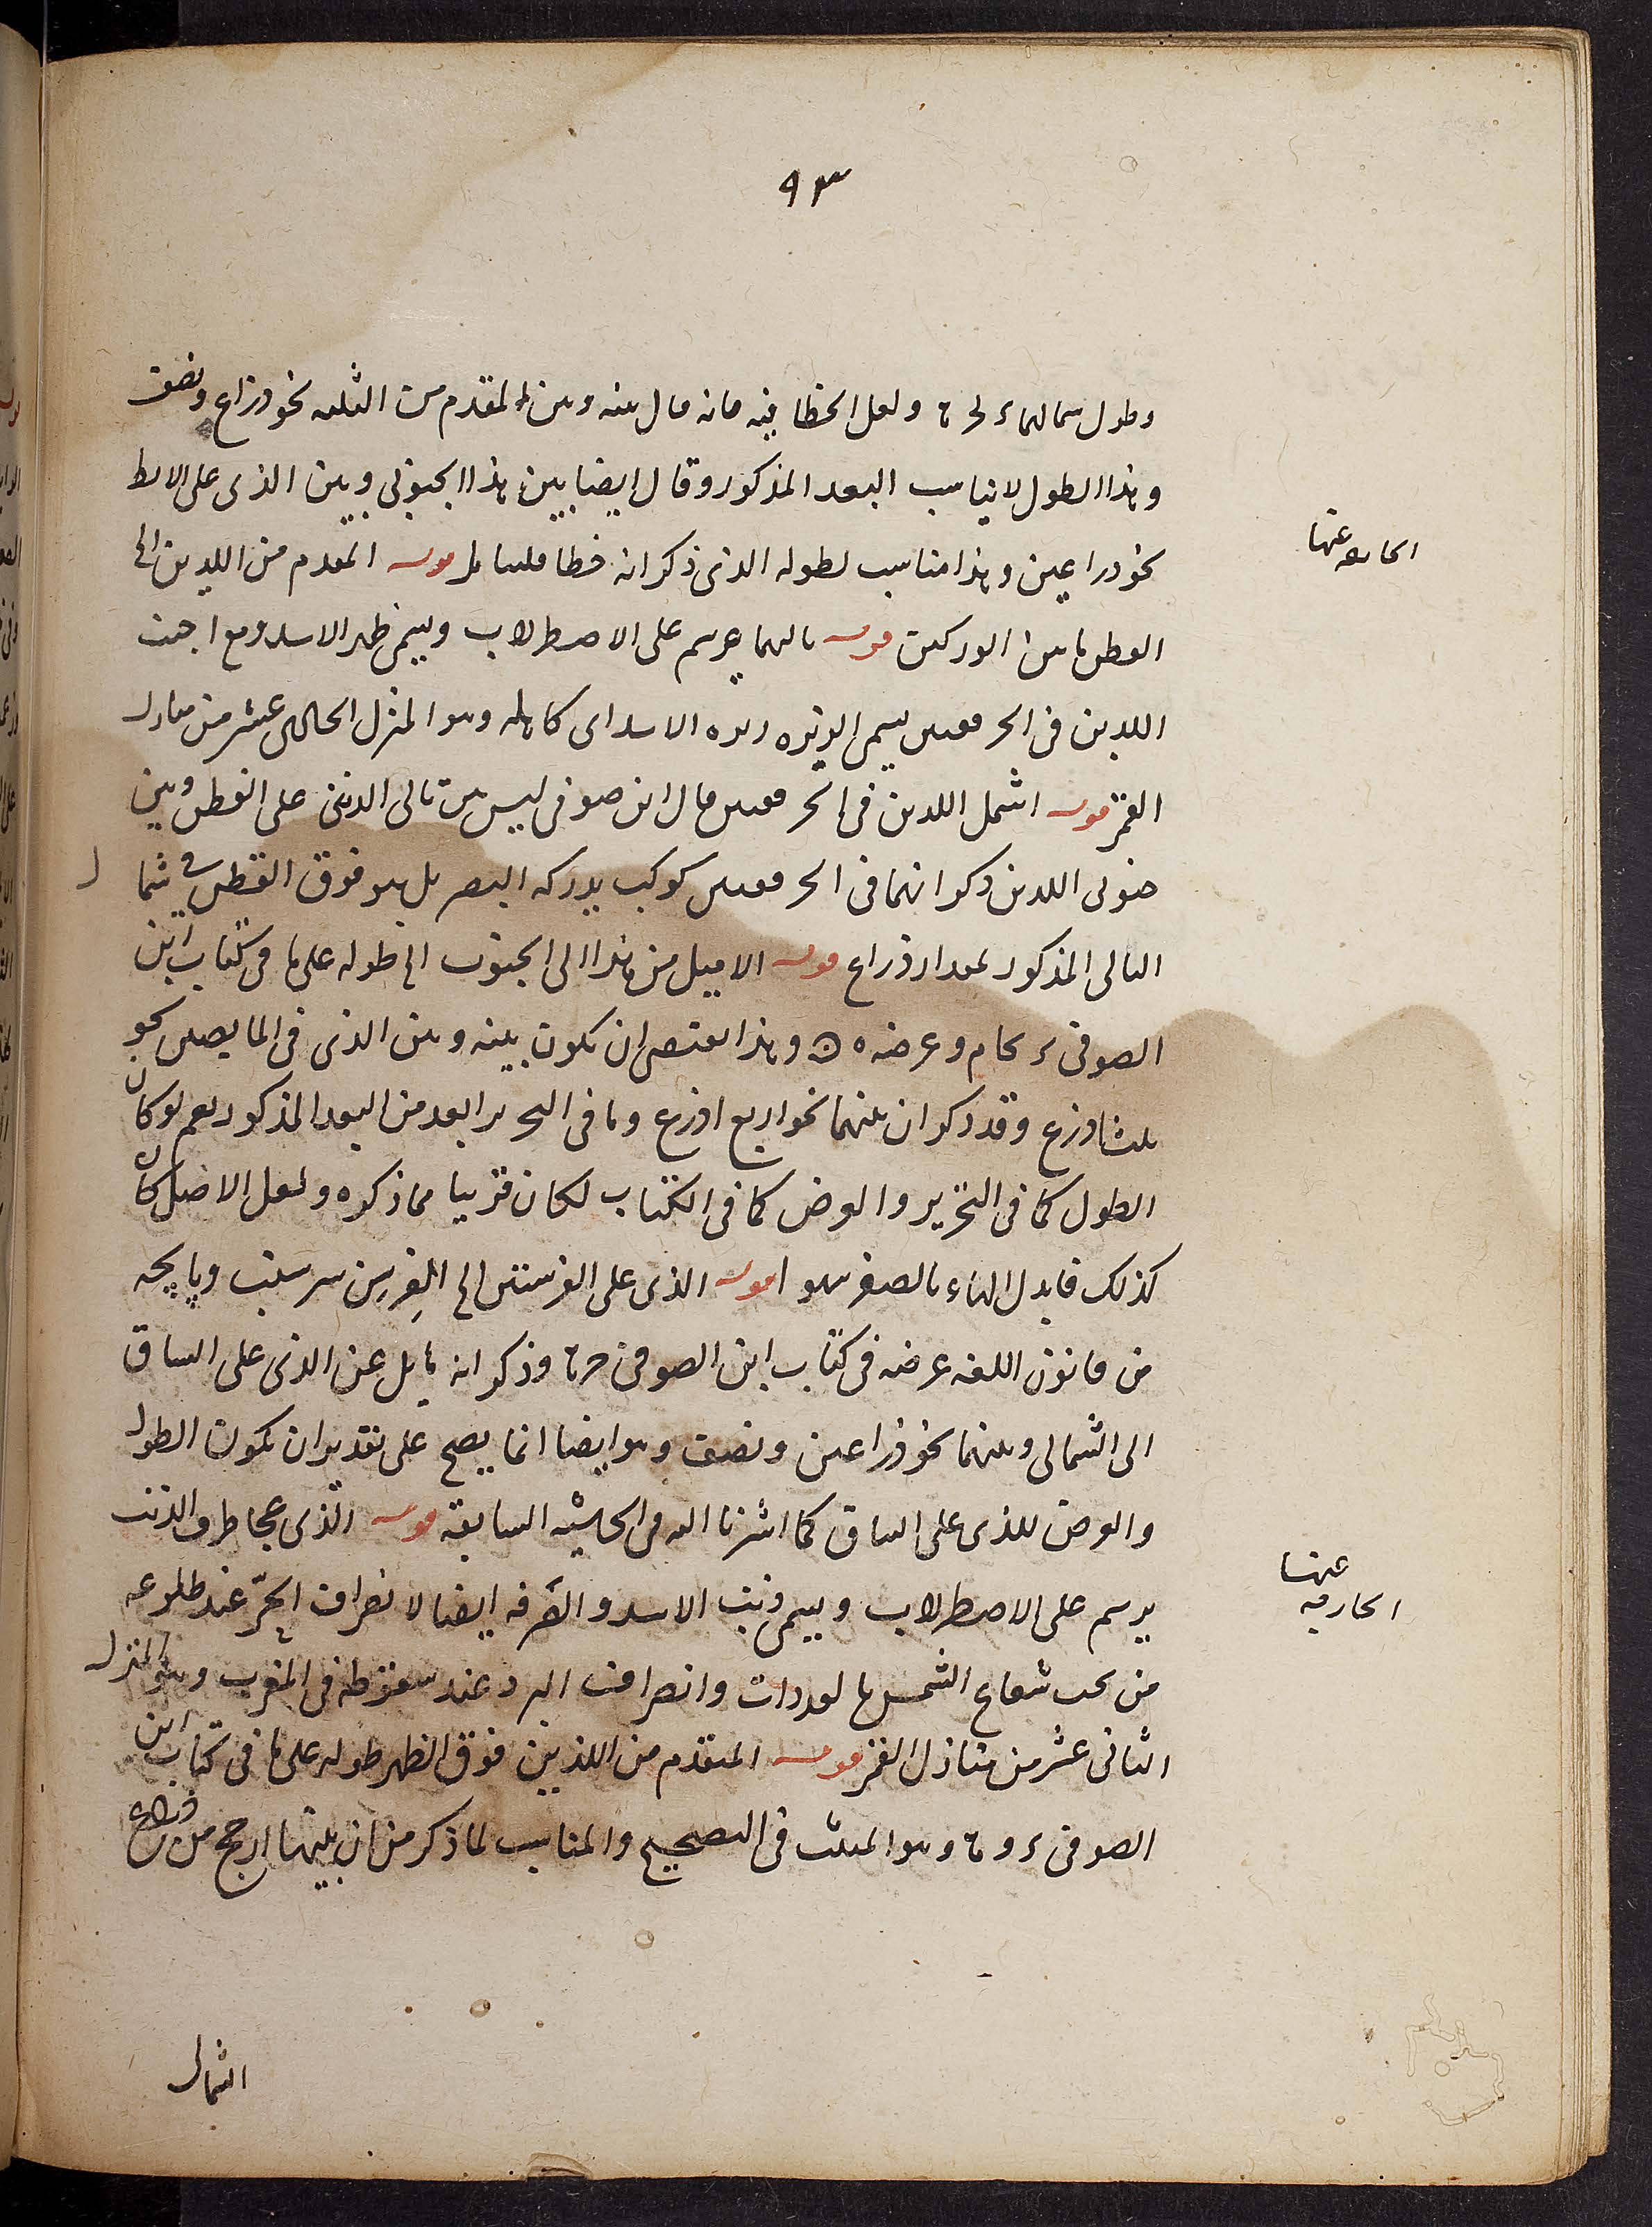 ٩٣
وطول شمالهما ء لح ة ولعل الخطا فيه فانه قال بينه وبين المقدم من الثلثه نحو ذراع ونصف
وهذا الطول لا يناسب البعد المذكور وقال ايضا بين هذا الجنوبى وبين الذى على الابط
نحو ذراعين وهذا مناسب لطوله الذى ذكر انه خطا فليتامل قوله المقدم من اللذين الى
القطن ما بين الوركين قوله تاليهما يرسم على الاصطرلاب ويسمى ظهر الاسد ومع اجنب
اللذين فى الحرقفتين يسمى الزبره زبره الاسد اى كاهله وهو المنزل الحادى عشر من منازل
القمر قوله اشمل اللذين فى الحرقفتين قال ابن صوفى ليس بين تالى الذين على القطن وبين
جنوبى اللذين ذكر انهما فى الحرقفتين كوكب يدركه البصر بل هو فوق القطن فى شمال
التالى المذكور بمقدار ذراع قوله الاميل من هذا الى الجنوب الخ طوله على ما فى كتاب ابن
الصوفى وعرضه وهذا يقتضى ان يكون بينه وبين الذى فى المابضين نحو
ثلث اذرع وقد ذكر ان بينهما نحو اربع اذرع وما فى التحرير ابعد من البعد المذكور نعم لو كان
الطول كما فى التحرير والعرض كما فى الكتاب لكان قريبا مما ذكره ولعل الاصل كان
كذلك فابدل الهاء بالصفر سهوا قوله الذى على الفرسنتين الى الفرسن سر سنب وپاپچه
من قانون اللغه عرضه فى كتاب ابن الصوفى ح ة وذكر انه مايل عن الذى على الساق
الى الشمالى وبينهما نحو ذراعين ونصف وهو ايضا انما يصح على تقدير ان يكون الطول
والعرض للذى على الساق كما اشرنا اليه فى الحاشيه السابقة قوله الذى على طرف الذنب
يرسم على الاصطرلاب ويسمى ذنب الاسد والصرفه ايضا لانصراف الحرّ عند طلوعه
من تحت شعاع الشمس بالغدوات وانصراف البرد عند سقوطه فى المغرب وهو المنزل
الثانى عشر من منازل القمر قوله المتقدم من اللذين فوق الظهر طوله على ما فى كتاب ابن
الصوفى ء و ة وهو المثبت فى التصحيح والمناسب لما ذكر من ان بينهما ارجح من ذراع
عنها
الحارقه
الشمال